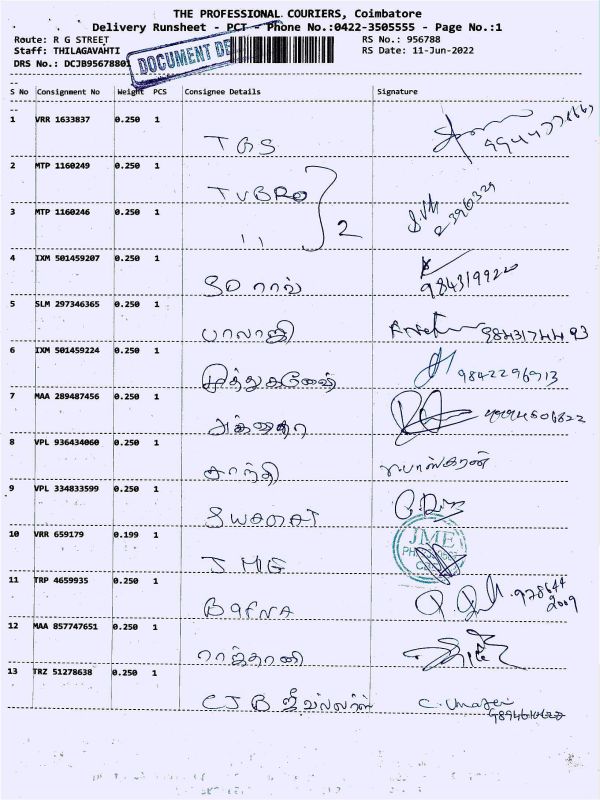 THE PROFESSIONAL COURIERS, Coimbatore
Delivery Runsheet - PCT - Phone No.:0422-3505555 - Page No.:1
Route: R G STREET
RS No.: 956788
Staff: THILAGAVAHTI
RS Date: 11-Jun-2022
DRS No.: DCJB95678801
DOCUMENT DE
S No Consignment No Weight PCS Consignee Details Signature
1 VRR 1633837 0.250 1
TGS
2 MTP 1160249 0.250 1
TVBRO
3 MTP 1160246 0.250 1
" 2
4 IXM 501459207 0.250 1
SO ராவ் 984319922
5 SLM 297346365 0.250 1
பாலாஜி
6 IXM 501459224 0.250 1
முத்துகணேஷ் 9842296913
7 MAA 289487456 0.250 1
8 VPL 936434060 0.250 1
சாந்தி பாஸ்கரன்
9 VPL 334833599 0.250 1
10 VRR 659179 0.199 1
JMG JME
11 TRP 4659935 0.250 1
BAFNA 978644
2009
12 MAA 857747651 0.250 1
ராஜ்தானி
13 TRZ 51278638 0.250 1
CJB ஜீவல்லர்ஸ்